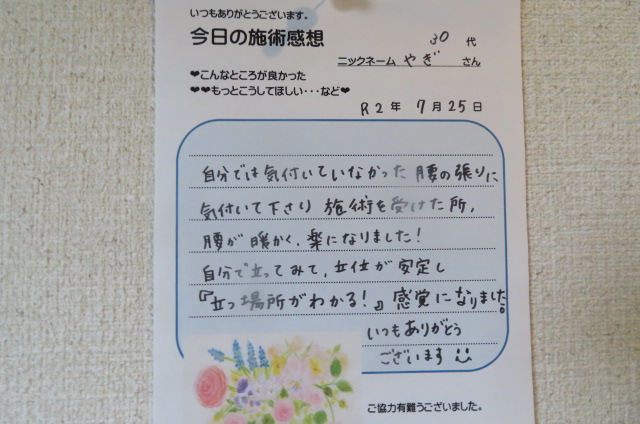 いつもありがとうございます。
今日の施術感想
30 代
ニックネーム やぎ さん
❤こんなところが良かった
❤❤もっとこうしてほしい・・・など❤
R2年 7月25日
自分では気付いていなかった腰の張りに
気付いて下さり 施術を受けた所、
腰が暖かく、楽になりました！
自分で立ってみて、立位が安定し
『立つ場所がわかる！』感覚になりました。
いつもありがとう
ございます
ご協力有難うございました。